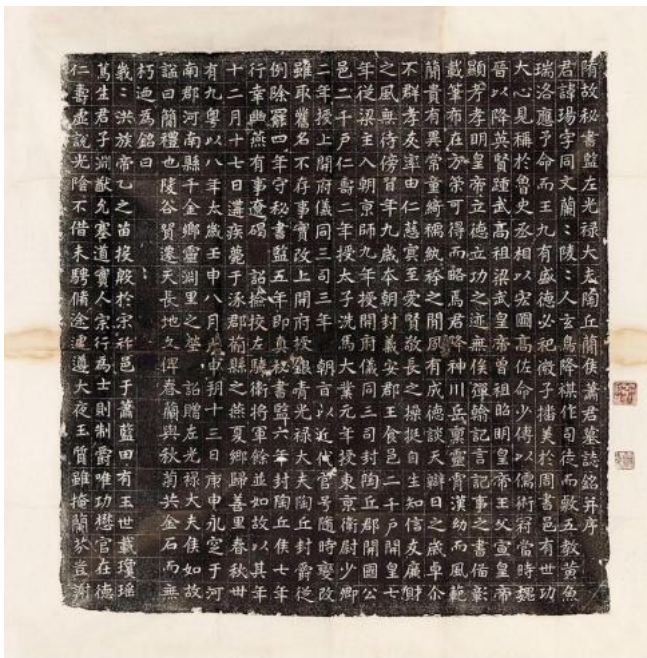 隋故秘書監左光祿大夫陶丘簡侯蕭君墓誌銘并序
君諱瑒字同文蘭〻陵〻人玄鳥降祺作司徒而敷五教黃魚
瑞洛應予命而王九有盛德必祀微子播美於周書邑有世功
大心見稱於魯史丞相以宏圖高佐命少傅以儒術冠當時魏
晉以降英賢踵武高祖梁武皇帝曾祖昭明皇帝王父宣皇帝
顯考孝明皇帝立德立功之迹無俟殫翰記言記事之書備彰
載筆布在方策可得而略焉君降神川岳稟靈霄漢幼而風範
簡貴有異常童綺襦紈袴之間夙有成德談天辯日之歲卓尒
不群孝友率由仁慈寔至愛賢敬長之操挺自生知信友廉財
之風無待傍習年九歲本朝封義安郡王食邑二千戶開皇七
年從梁主入朝京師九年授開府儀同三司封陶丘郡開國公
邑二千戶仁壽二年授太子洗馬大業元年授東京衛尉少卿
二年授上開府儀同三司三年 朝旨以近代官号隨時變改
雖取舊名不存事實改上開府授銀青光祿大夫陶丘封爵從
例除罷四年守秘書監五年即真秘書監六年封陶丘侯七年
行幸幽燕有事遼碣 詔撿校左驍衛將軍餘並如故以其年
十二月十七日遘疾薨于涿郡薊縣之燕夏鄉歸善里春秋卌
有九粵以八年太歲壬申八月戊申朔十三日庚申永窆于河
南郡河南縣千金鄉靈淵里之塋 詔贈左光祿大夫侯如故
謚曰簡禮也陵谷貿遷天長地久俾春蘭與秋菊共金石而無
朽迺為銘曰
峩〻洪族帝乙之苗投殷於宗祚邑于蕭藍田有玉世載瓊瑤
篤生君子淵猷允塞道實人宗行為士則制爵唯功懋官在德
仁壽虛說光陰不借未騁脩途遽遵大夜玉質雖掩蘭芬豈謝